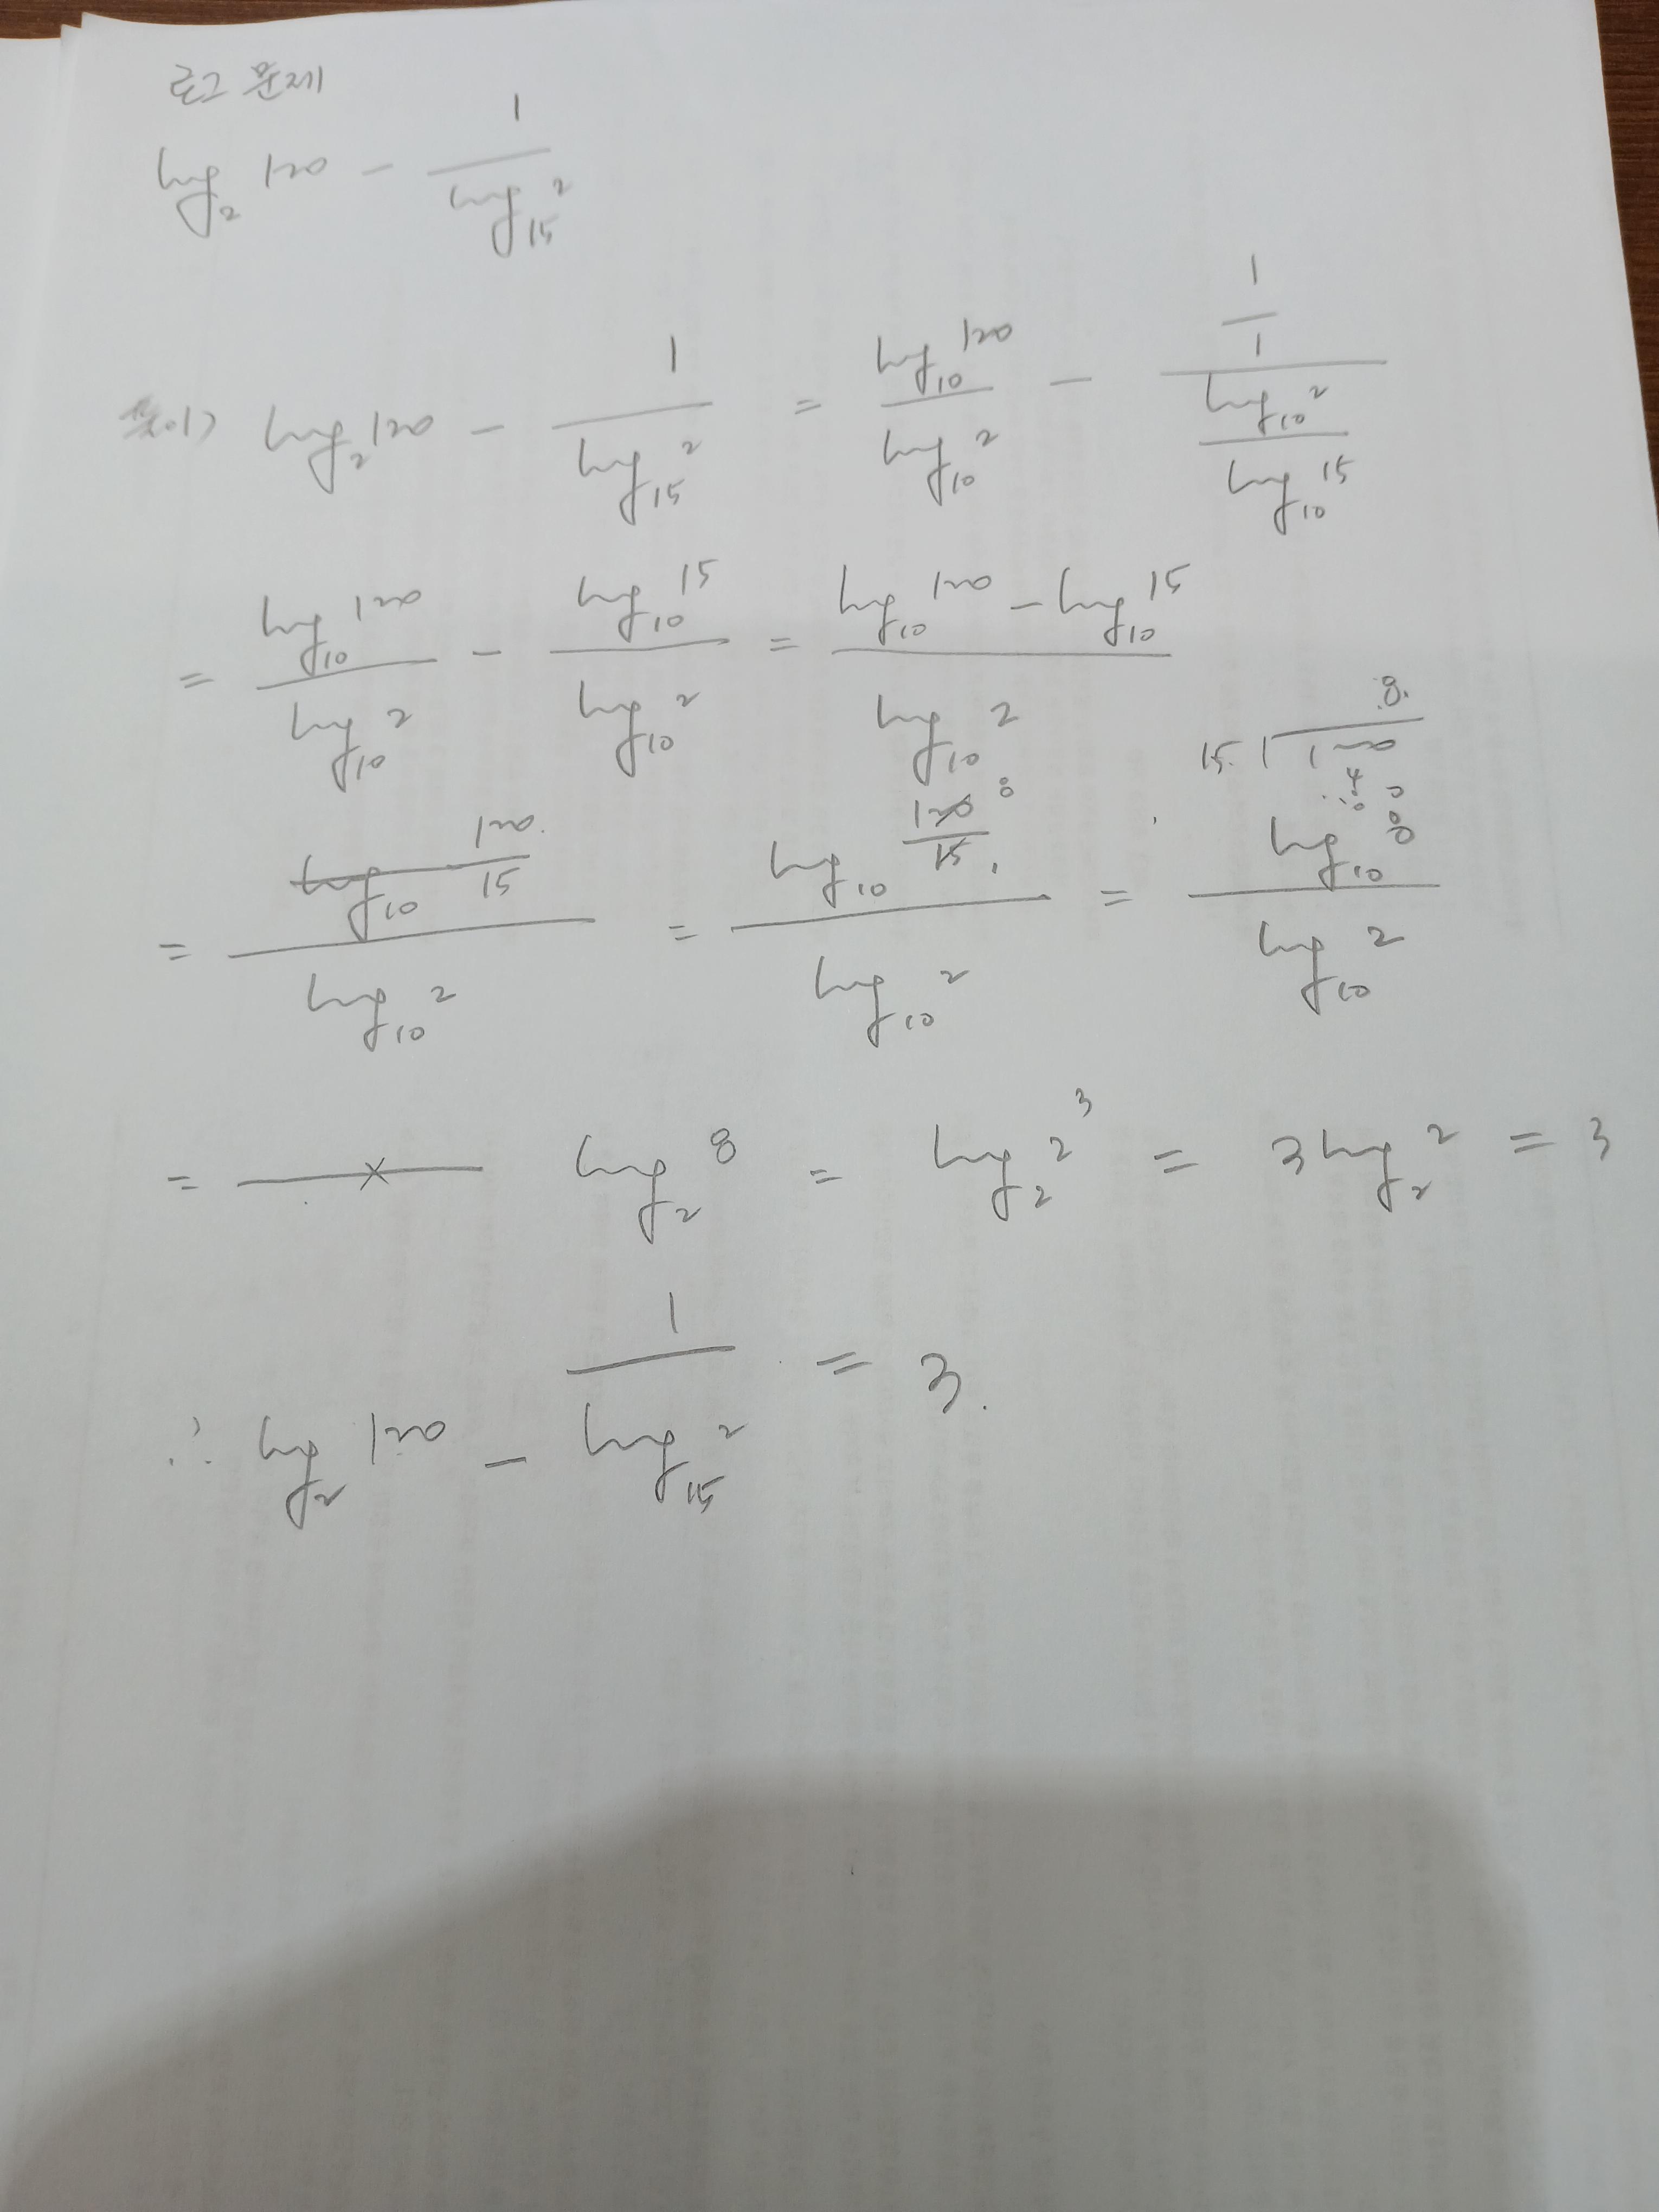 로그 문제
log₂ 120 - 1/(log₁₅ 2)
풀이) log₂ 120 - 1/(log₁₅ 2) = (log₁₀ 120)/(log₁₀ 2) - (1/1)/((log₁₀ 2)/(log₁₀ 15))
= (log₁₀ 120)/(log₁₀ 2) - (log₁₀ 15)/(log₁₀ 2) = (log₁₀ 120 - log₁₀ 15)/(log₁₀ 2)
= (log₁₀ 120/15)/(log₁₀ 2) = (log₁₀ 120/15)/(log₁₀ 2) = (log₁₀ 8)/(log₁₀ 2)
= log₂ 8 = log₂ 2³ = 3 log₂ 2 = 3
∴ log₂ 120 - 1/(log₁₅ 2) = 3.